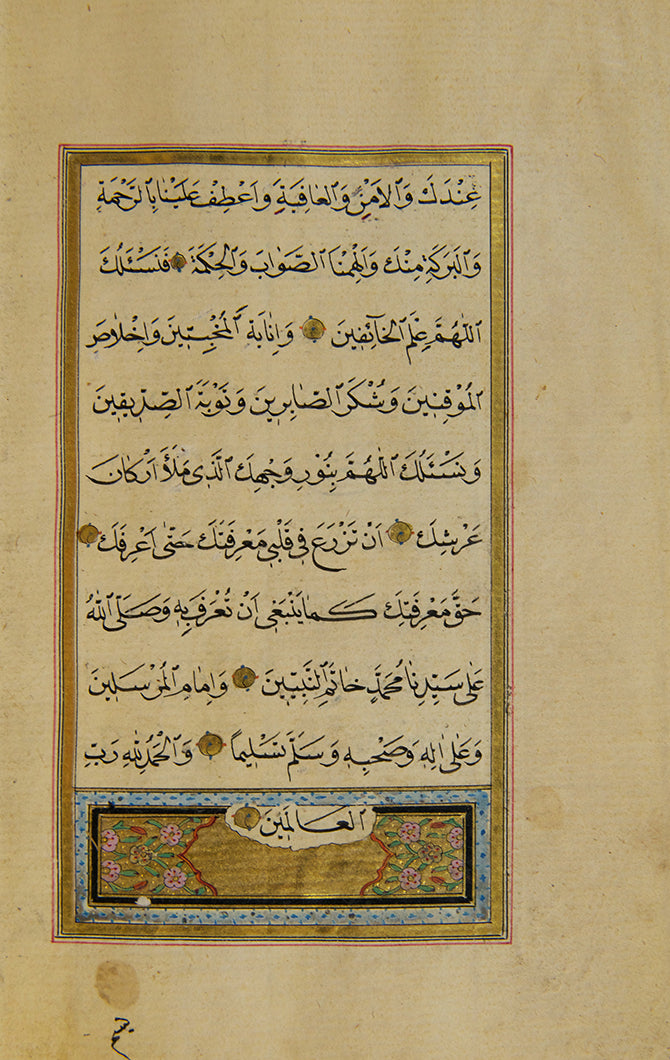 عِنْدَكَ وَالْاَمْنِ وَالْعَافِيَةِ وَاَعْطِفْ عَلَيْنَا بِالرَّحْمَةِ
وَالْبَرَكَةِ مِنْكَ وَاَلْهِمْنَا الصَّوَابَ وَالْحِكْمَةَ فَنَسْئَلُكَ
اَللّٰهُمَّ عِلْمَ الْخَآئِفِينَ وَاِنَابَةِ الْمُخْبِتِينَ وَاِخْلَاصَ
الْمُوقِنِينَ وَشُكْرَ الصَّابِرِينَ وَتَوْبَةَ الصِّدِّيقِينَ
وَنَسْئَلُكَ اَللّٰهُمَّ بِنُورِ وَجْهِكَ الَّذِى مَلَأَ اَرْكَانَ
عَرْشِكَ اَنْ تَزْرَعَ فِى قَلْبِى مَعْرِفَتَكَ حَتّٰى اَعْرِفَكَ
حَقَّ مَعْرِفَتِكَ كَمَا يَنْبَغِى اَنْ تُعْرَفَ بِهِ وَصَلَّى اللّٰهُ
عَلٰى سَيِّدِنَا مُحَمَّدٍ خَاتَمِ النَّبِيِّينَ وَاِمَامِ الْمُرْسَلِينَ
وَعَلٰى اٰلِهِ وَصَحْبِهِ وَسَلَّمَ تَسْلِيمًا وَالْحَمْدُ لِلّٰهِ رَبِّ
الْعَالَمِينَ